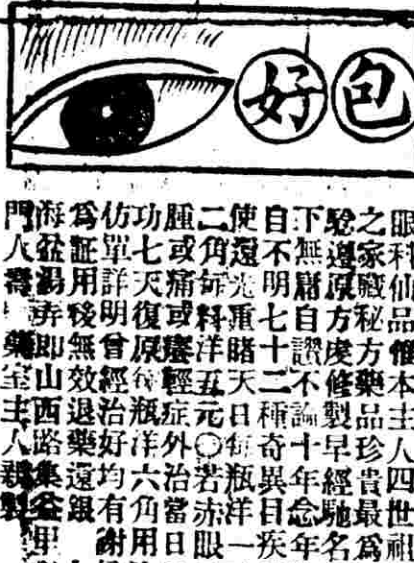 包好
眼科仙品本主人四世祖
之家藏秘方藥品珍貴最爲
驗遵原方虔修製早經馳名
下無庸自讚不論十年念年
自不明七十二種奇異目疾
使還光重睹天日每瓶洋一
二角每料洋五元〇若赤眼
腫或痛或癢輕症外治當日
功七天復原每瓶洋六角用
仿單詳明曾經治好均有謝
爲証用後無效退藥還銀
海盆湯弄即山西路集益里
門人壽藥室主人親製